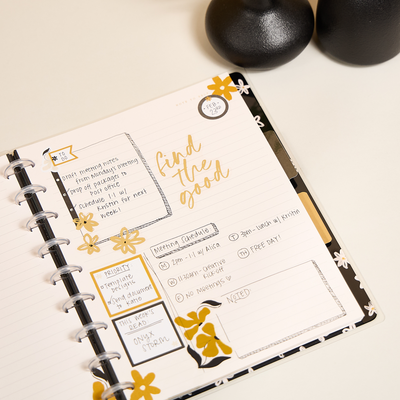 FEB
22ND
TO
DO
Draft meeting notes
from Monday's meeting
Drop off packages to
post office
Schedule 1:1 w/
Kristin for next
week!
find
the
good
Meeting Schedule
M 2pm - 1:1 w/ Alica
T 3pm - Lunch w/ Kristin
W 11:30am - creative
kick off
TH FREE DAY!
F NO Meetings
PRIORITY
template
designs
Send document
to Katie
THIS WEEK'S
READ
ONYX
STORM
NOTES